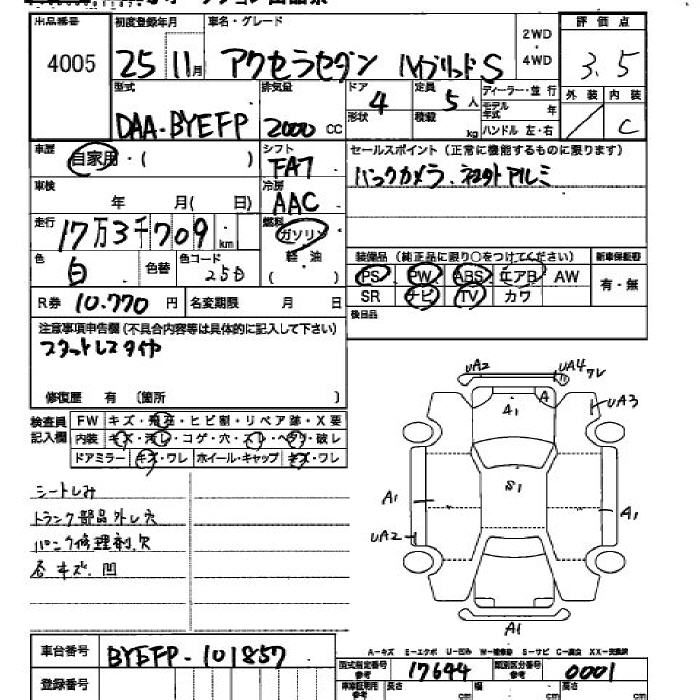 出品番号 初度登録年月 車名・グレード 2WD・4WD 評価点
4005 25 11月 アクセラセダン ハイブリッドS 3.5
型式 排気量 ドア 4 定員 5人 ディーラー・並行 外装 内装
形状 積載 kg モデル年式 年 ハンドル 左・右 C
DAA-BYEFP 2000cc
車歴 自家用・( ) シフト FA7 セールスポイント(正常に機能するものに限ります)
車検 年 月( 日) 冷房 AAC バックカメラ、社外アルミ
走行 17万3千709km 燃料 ガソリン 軽油 ( )
色 白 色替 色コード 25D 装備品(純正品に限り○をつけてください) 新車保証書
PS PW ABS エアB AW 有・無
R券 10.770円 名変期限 月 日 SR ナビ TV カワ
後日品
注意事項申告欄(不具合内容等は具体的に記入して下さい)
スタットレスタイヤ
修復歴 有 〔箇所 〕
検査員記入欄 FW キズ・飛石・ヒビ割・リペア跡・X要
内装 キズ・汚レ・コゲ・穴・スレ・ヘタリ・破レ
ドアミラー キズ・ワレ ホイール・キャップ キズ・ワレ
シートしみ
トランク部品外し穴
パンク修理剤、欠
各キズ、凹
UA2 UA4 ワレ
A A1 UA3
S1
A1 A1
UA2
A1
A-キズ E-エクボ U-凹み W-補修跡 S-サビ C-腐食 XX-交換済
車台番号 BYEFP-101857 型式指定番号 参考 17644 類別区分番号 参考 0001
登録番号 長さ cm 幅 cm 高さ cm